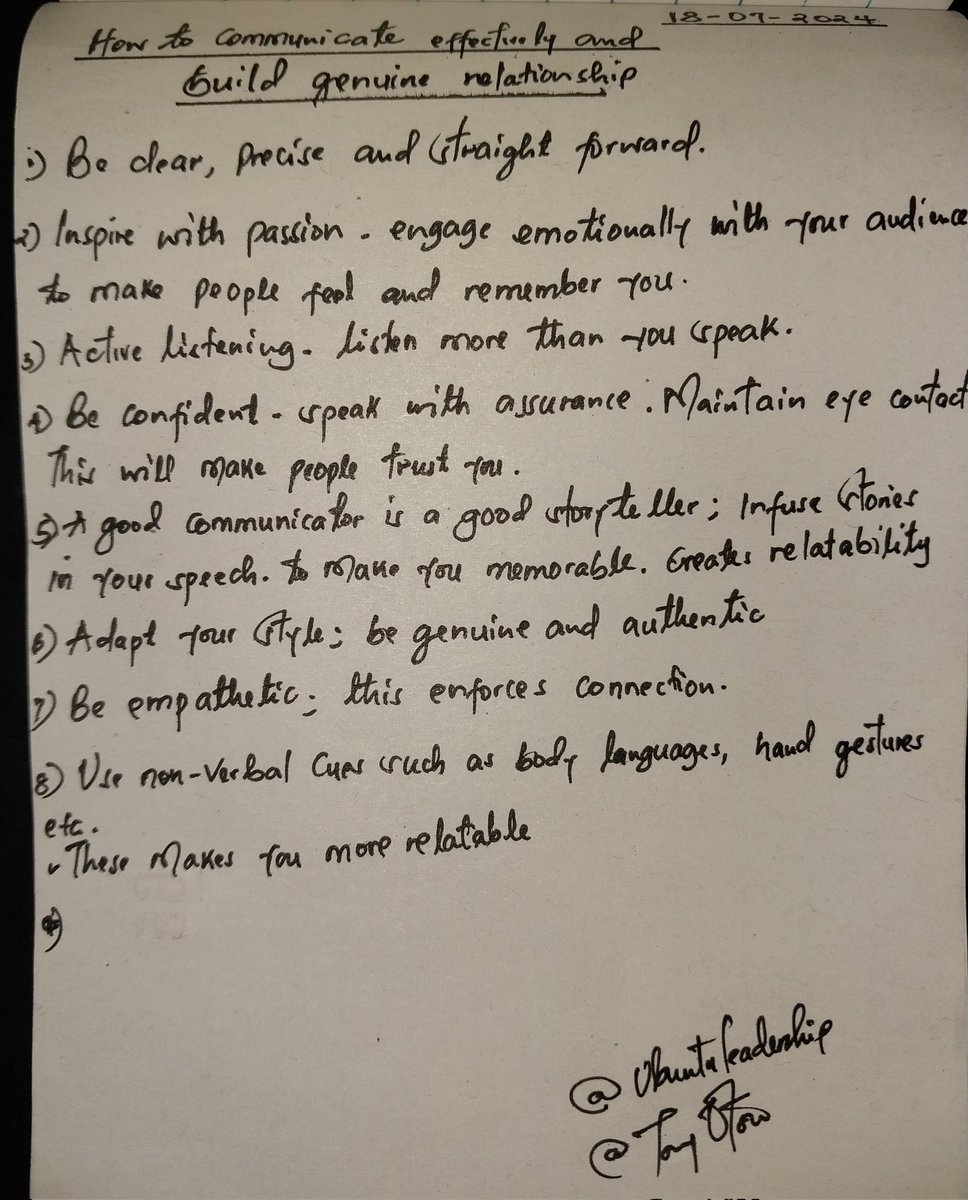 18-07-2024
How to communicate effectively and
build genuine relationship
1) Be clear, precise and straight forward.
2) Inspire with passion - engage emotionally with your audience
to make people feel and remember you.
3) Active listening - listen more than you speak.
4) Be confident - speak with assurance. Maintain eye contact
This will make people trust you.
5) A good communicator is a good storyteller; Infuse stories
in your speech. to make you memorable. Creates relatability
6) Adapt your style; be genuine and authentic
7) Be empathetic; this enforces connection.
8) Use non-verbal cues such as body languages, hand gestures
etc.
These makes you more relatable
@ Ubuntu leadership
@ Tony